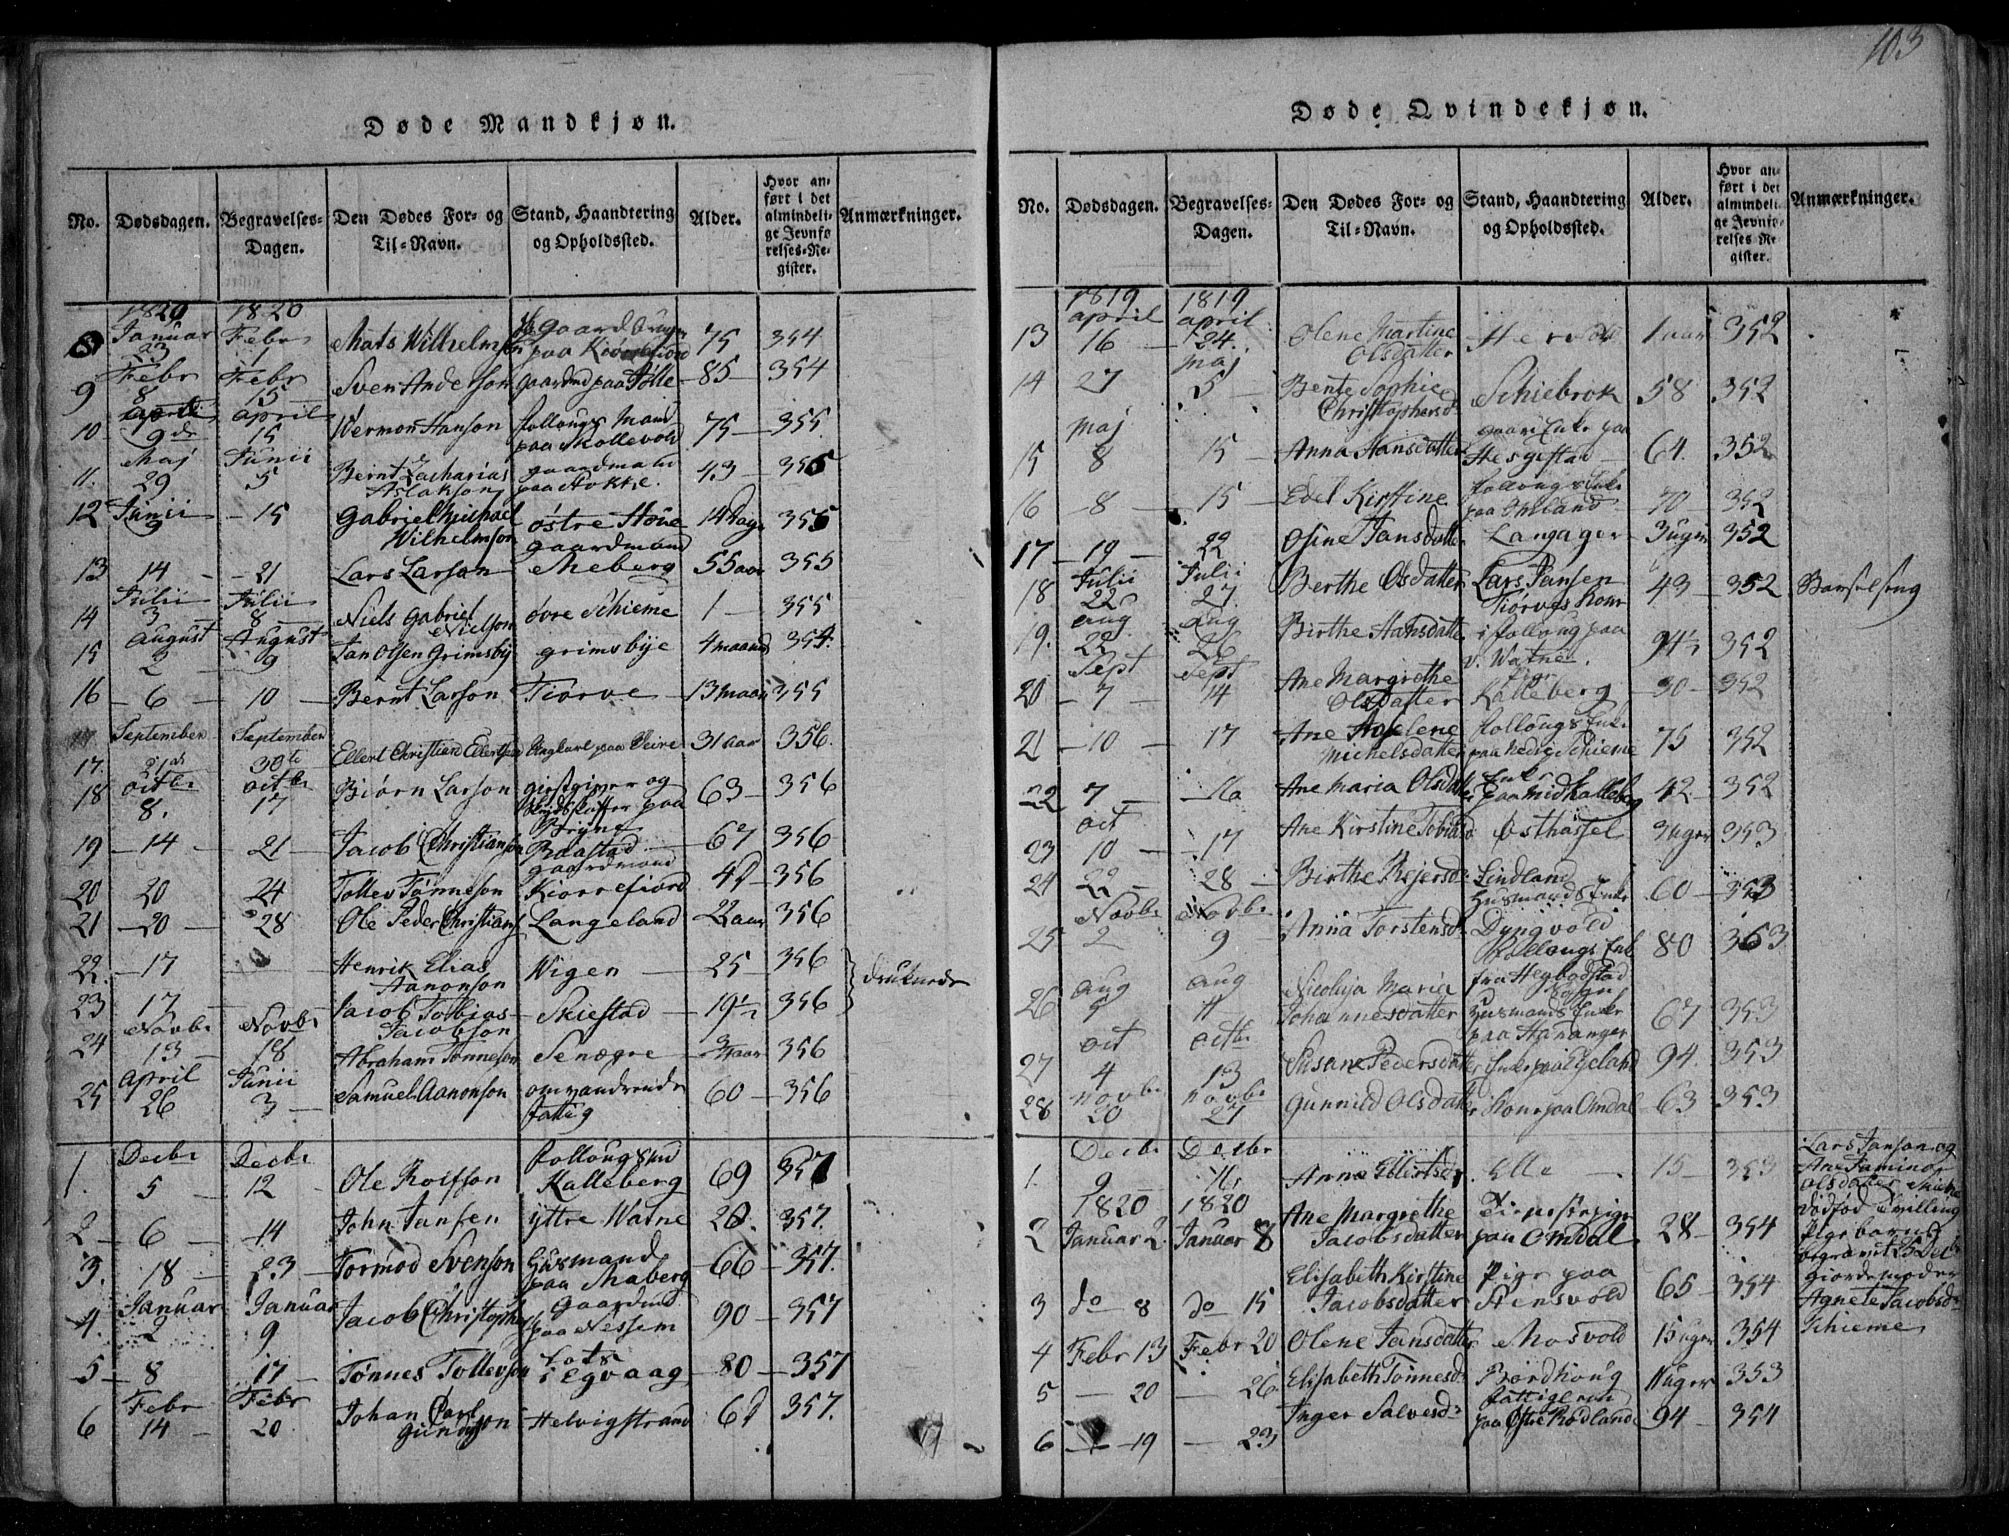 103
Døde Mandkjøn.
No. Dødsdagen. Begravelses-Dagen. Den Dødes For- og Til-Navn. Stand, Haandtering og Opholdssted. Alder. Hvor anført i det almindelige Jevnførelses-Register. Anmærkninger.
1820 1820
8 Januar 23 Febr 1 Mats Wilhelmsen paa 75 354
9 Febr 8 Febr 15 Sven Anderson gaardmd paa Tølle 85 354
10 april 9de april 15 Wermon Hanson follougs Mand paa Skollevold 75 355
11. Maj 29 Junii 5 Bernt Zacharias Aslakson gaardmand paa 43 355
12 Junii 3 15 Gabriel Michael Wilhelmson østre Høve 14 Dage 355
13 14 21 Lars Larson gaardmand Meberg 55 aar 355
14 Julii 3 Julii 8 Niels Gabriel Nielson øvre Schieme 1 355
15 august 2 August 9 Jan Olsen Grimsby grimsbye 4 maaned 354.
16 6 10 Bernt Larson Tiørve 13 maan 355
17. September September 30te Ellert Christian Ellertsen Ungkarl paa Veire 31 aar 356.
18 octbr 8. octbr 17 Biørn Larson giestgiver og paa Bryne 63 356
19 14 21 Jacob Christianson Baastad 67 356
20 20 24 Tollev Tønneson gaardmand Kiørrefiord 356
21 20 28 Ole Peder Christians Langeland 22 aar 356
22. 17 Henrik Elias Aanonson Wigen 25 356
druknede
23 17 Jacob Tobias Jacobson Skiestad 19½ 356
24 Novbr 13 Novbr 18 Abraham Tønneson Senægre aar 356
25 april 26 Junii 3 Samuel Aanonson omvandrende fattig 60 356
1. Decbr 5 Decbr 12 Ole Rolfson follougsmd Kalleberg 69 357
2 6 14 John Jansen ÿttre Watne 357.
3. 18 23 Tormod Svenson Huusmand paa Maberg 66 357.
4. Januar 2 Januar 9 Jacob Christophe gaardmd paa Nessem 90 357
5 8 17 Tønnes Tollevson Lots i Egvaag 80 357
6 Febr 14 Febr 20 Johan Carl Helvigstrand 357.
Døde Qvindekjøn.
No. Dødsdagen. Begravelses-Dagen. Den Dødes For- og Til-Navn. Stand, Haandtering og Opholdssted. Alder. Hvor anført i det almindelige Jevnførelses Register. Anmærkninger.
1819 1819
13 april 16 april 24. Olene Martine Olsdatter Hervold 1 aar 352
14 27 maj 5 Bente Sophie Christophersd: Schiebrok 58 352
15 maj 8 15 Anna Hansdatter Enke paa Hesgestad 64. 352
16 8 15 Edel Kirstine follougs Enke paa Omland 70 352
17 19 22 Osine Jansdatter Langager 3 uger 352
18 Julii 22 Julii 27. Berthe Olsdatter Lars Jansen Tiørves kone 43 352 Barselseng
19. aug 22 aug 26 Birthe Hansdatter i follaug paa v. Watne 94½ 352
20 Sept 7 Sept 14 Ane Margrethe Olsdatter Pige Kalleberg 30 352
21 10 17 Ane Michelsdatter follougs Enke paa nedre Schieme 75 352
22 7 Ane Maria Olsdatter Enke paa midkalleberg 42 352
23 oct 10 17 Ane Kirstine Tobiasd Østhassel 3 uger 353
24 22 28 Birthe Rejersd: Lindland Huusmands Enke 60 353
25 Novbr 2 Novbr 9 Anna Torstensd: Dyngvold follougs Enke 80 363
26 aug aug 11 Nicolaja Maria Johannesdatter fra Hegbodstad Huusmands Enke paa Hananger 67 353
27 oct 4 octbr 13 Susane Pedersdatter Enke paa Egeland 94. 353
28 novbr 20 novbr 27 Gunnild Olsdatter kone paa Omdal 63 353
1. Decbr 9 Decbr Anna Ellertsd Elle 15 353
Lars Janson og
Ane Tamine
Olsdatter
dødfød Tvilling
Pige barn
begravet 25 Decbr
giordemoder
Agnete Jacobsd:
Schieme
1820 1820
2 Januar 2. Januar 8 Ane Margrethe Jacobsdatter paa Omdal 28 354
3 do 8 do 15 Elisabeth Kirstine Jacobsdatter Pige paa Stensvold 65 354
4 Febr 13 Febr 20 Olene Jansdatter Mosvold 15 uger 354
5 20 26 Elisabeth Tønnesd: Bordhoug 11 uger 353
6 19 23 Inger Salvesd: paa Østre Rødland 94 354